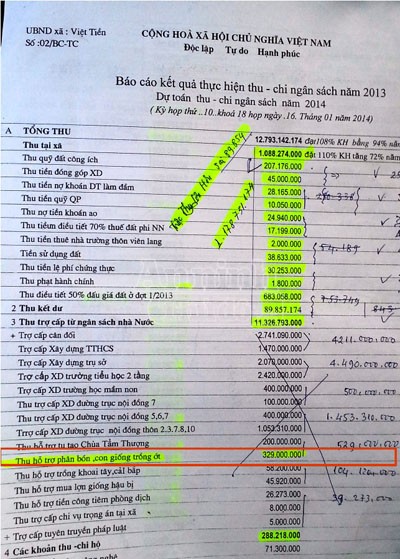 UBND xã : Việt Tiến
Số :02/BC-TC
CỘNG HOÀ XÃ HỘI CHỦ NGHĨA VIỆT NAM
Độc lập Tự do Hạnh phúc
Báo cáo kết quả thực hiện thu - chi ngân sách năm 2013
Dự toán thu - chi ngân sách năm 2014
( Kỳ họp thứ ..10..khoá 18 họp ngày .16. Tháng 01 năm 2014)
A TỔNG THU 12.793.142.174 đạt108% KH bằng 94% năm
Thu tại xã 1.088.274.000 đạt 110% KH tăng 72% năm
Thu quỹ đất công ích 207.176.000
Thu tiền đóng góp XD 45.000.000
Thu tiền nợ khoán DT làm đầm 28.165.000
Thu tiền quỹ QP 10.050.000
Thu nợ tiền khoán ao 24.940.000
Thu tiềm điều tiết 70% thuế đất phi NN 17.199.000
Thu tiền thuê nhà trường thôn viên lang 2.000.000
Tiền sử dụng đất 38.633.000
Thu tiền lệ phí chứng thực 30.253.000
Thu phạt hành chính 1.800.000
Thu điều tiết 50% đấu giá đất ở đợt 1/2013 683.058.000
2 Thu kết dư 89.857.174
3 Thu trợ cấp từ ngân sách nhà Nước 11.326.793.000
+ Trợ cấp cân đối 2.741.090.000
Trợ cấp Xây dựng TTHCS 1.470.000.000 4211.000.000
Trợ cấp Xây dựng trụ sở 2.070.000.000
Trợ cấp XD trường tiểu học 2 tầng 2.420.000.000 4.490.000.000
Trợ cấp XD trường học mầm non 400.000.000
Trợ cấp XD đường trục nội đồng 7 100.000.000 500.000.000
Trợ cấp XD đường trục nội đồng 5,6,7 400.000.000
Trrợ cấp XD đường trục nội đồng thôn 2.3.7.8,10 1.053.310.000 1.453.310.000
Thu hỗ trợ tu tạo Chùa Tầm Thượng 200.000.000
Thu hỗ trợ phân bón ,con giống trồng ớt 329.000.000 529.000.000
Thu hỗ trợ trồng khoai tây,cải bắp 58.200.000
Thu hỗ trợ mua lợn giống hậu bị 45.920.000
Thu hỗ trợ tiền công tiêm phòng dịch 26.273.000
Thu trợ cấp chi vụ trọng án tại xã 8.000.000
Trợ cấp tuyên truyền pháp luật 5.000.000
+ 288.218.000
4 Các khoản thu -chi hộ 71.300.000